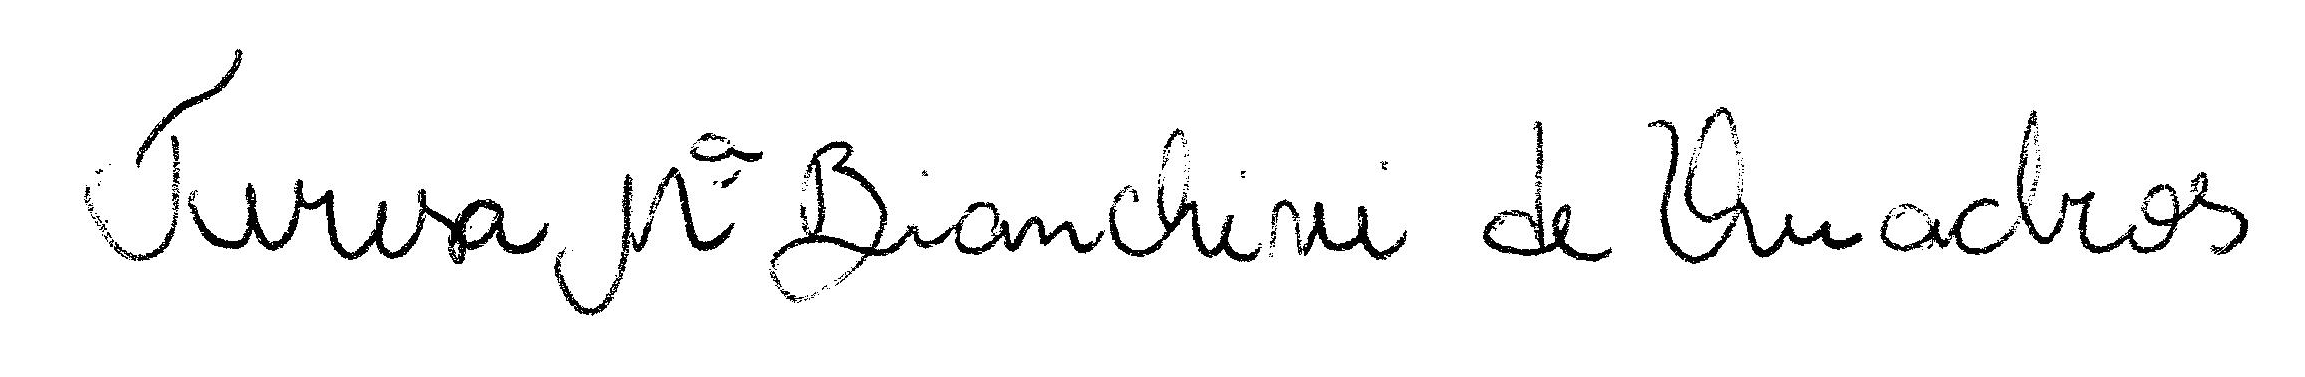 Teresa Mª Bianchini de Quadros